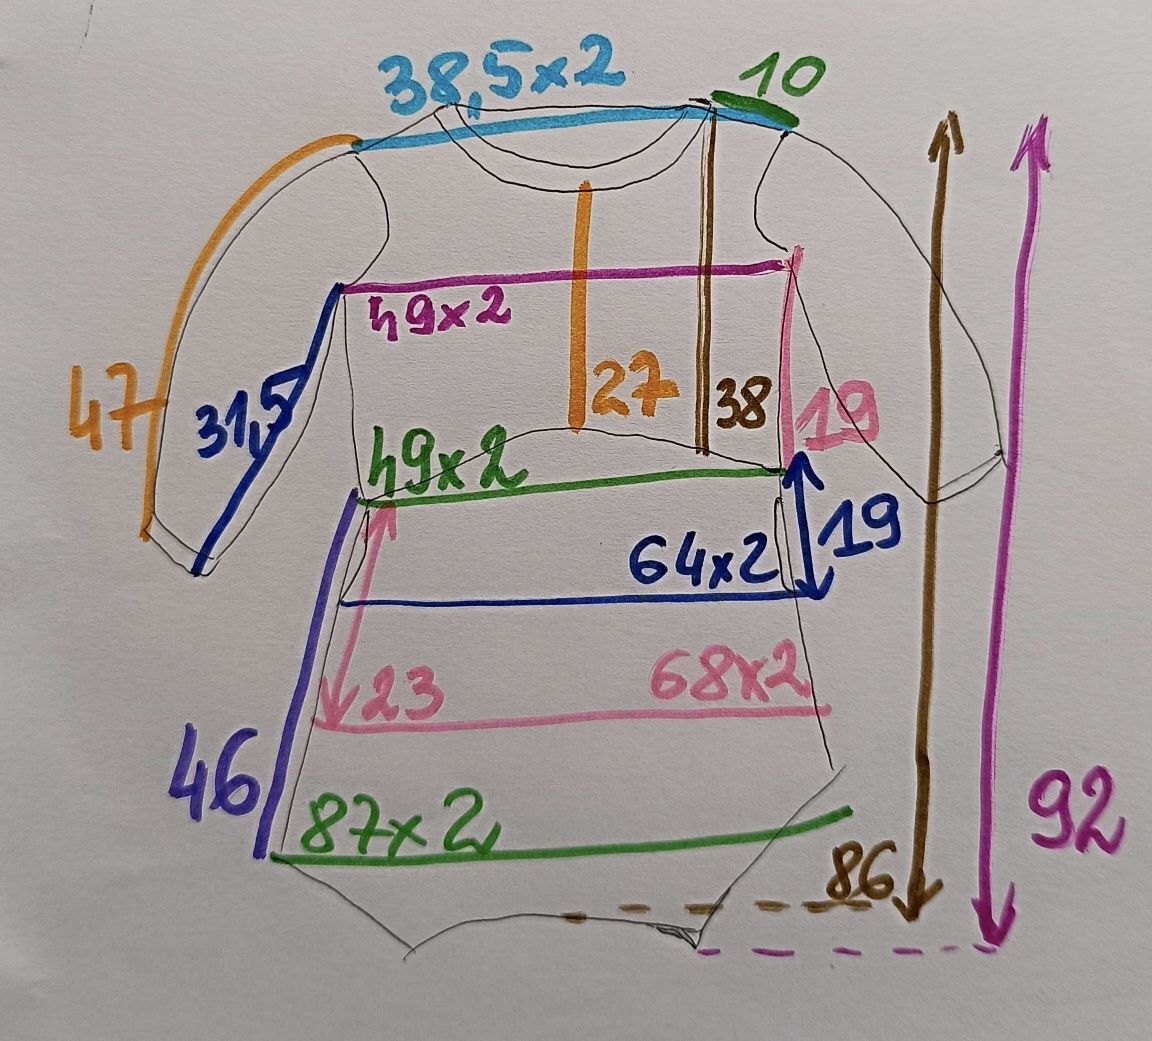 38,5x2
10
49x2
47
31,5
27
38
19
49x2
64x2
19
23
68x2
46
87x2
86
92